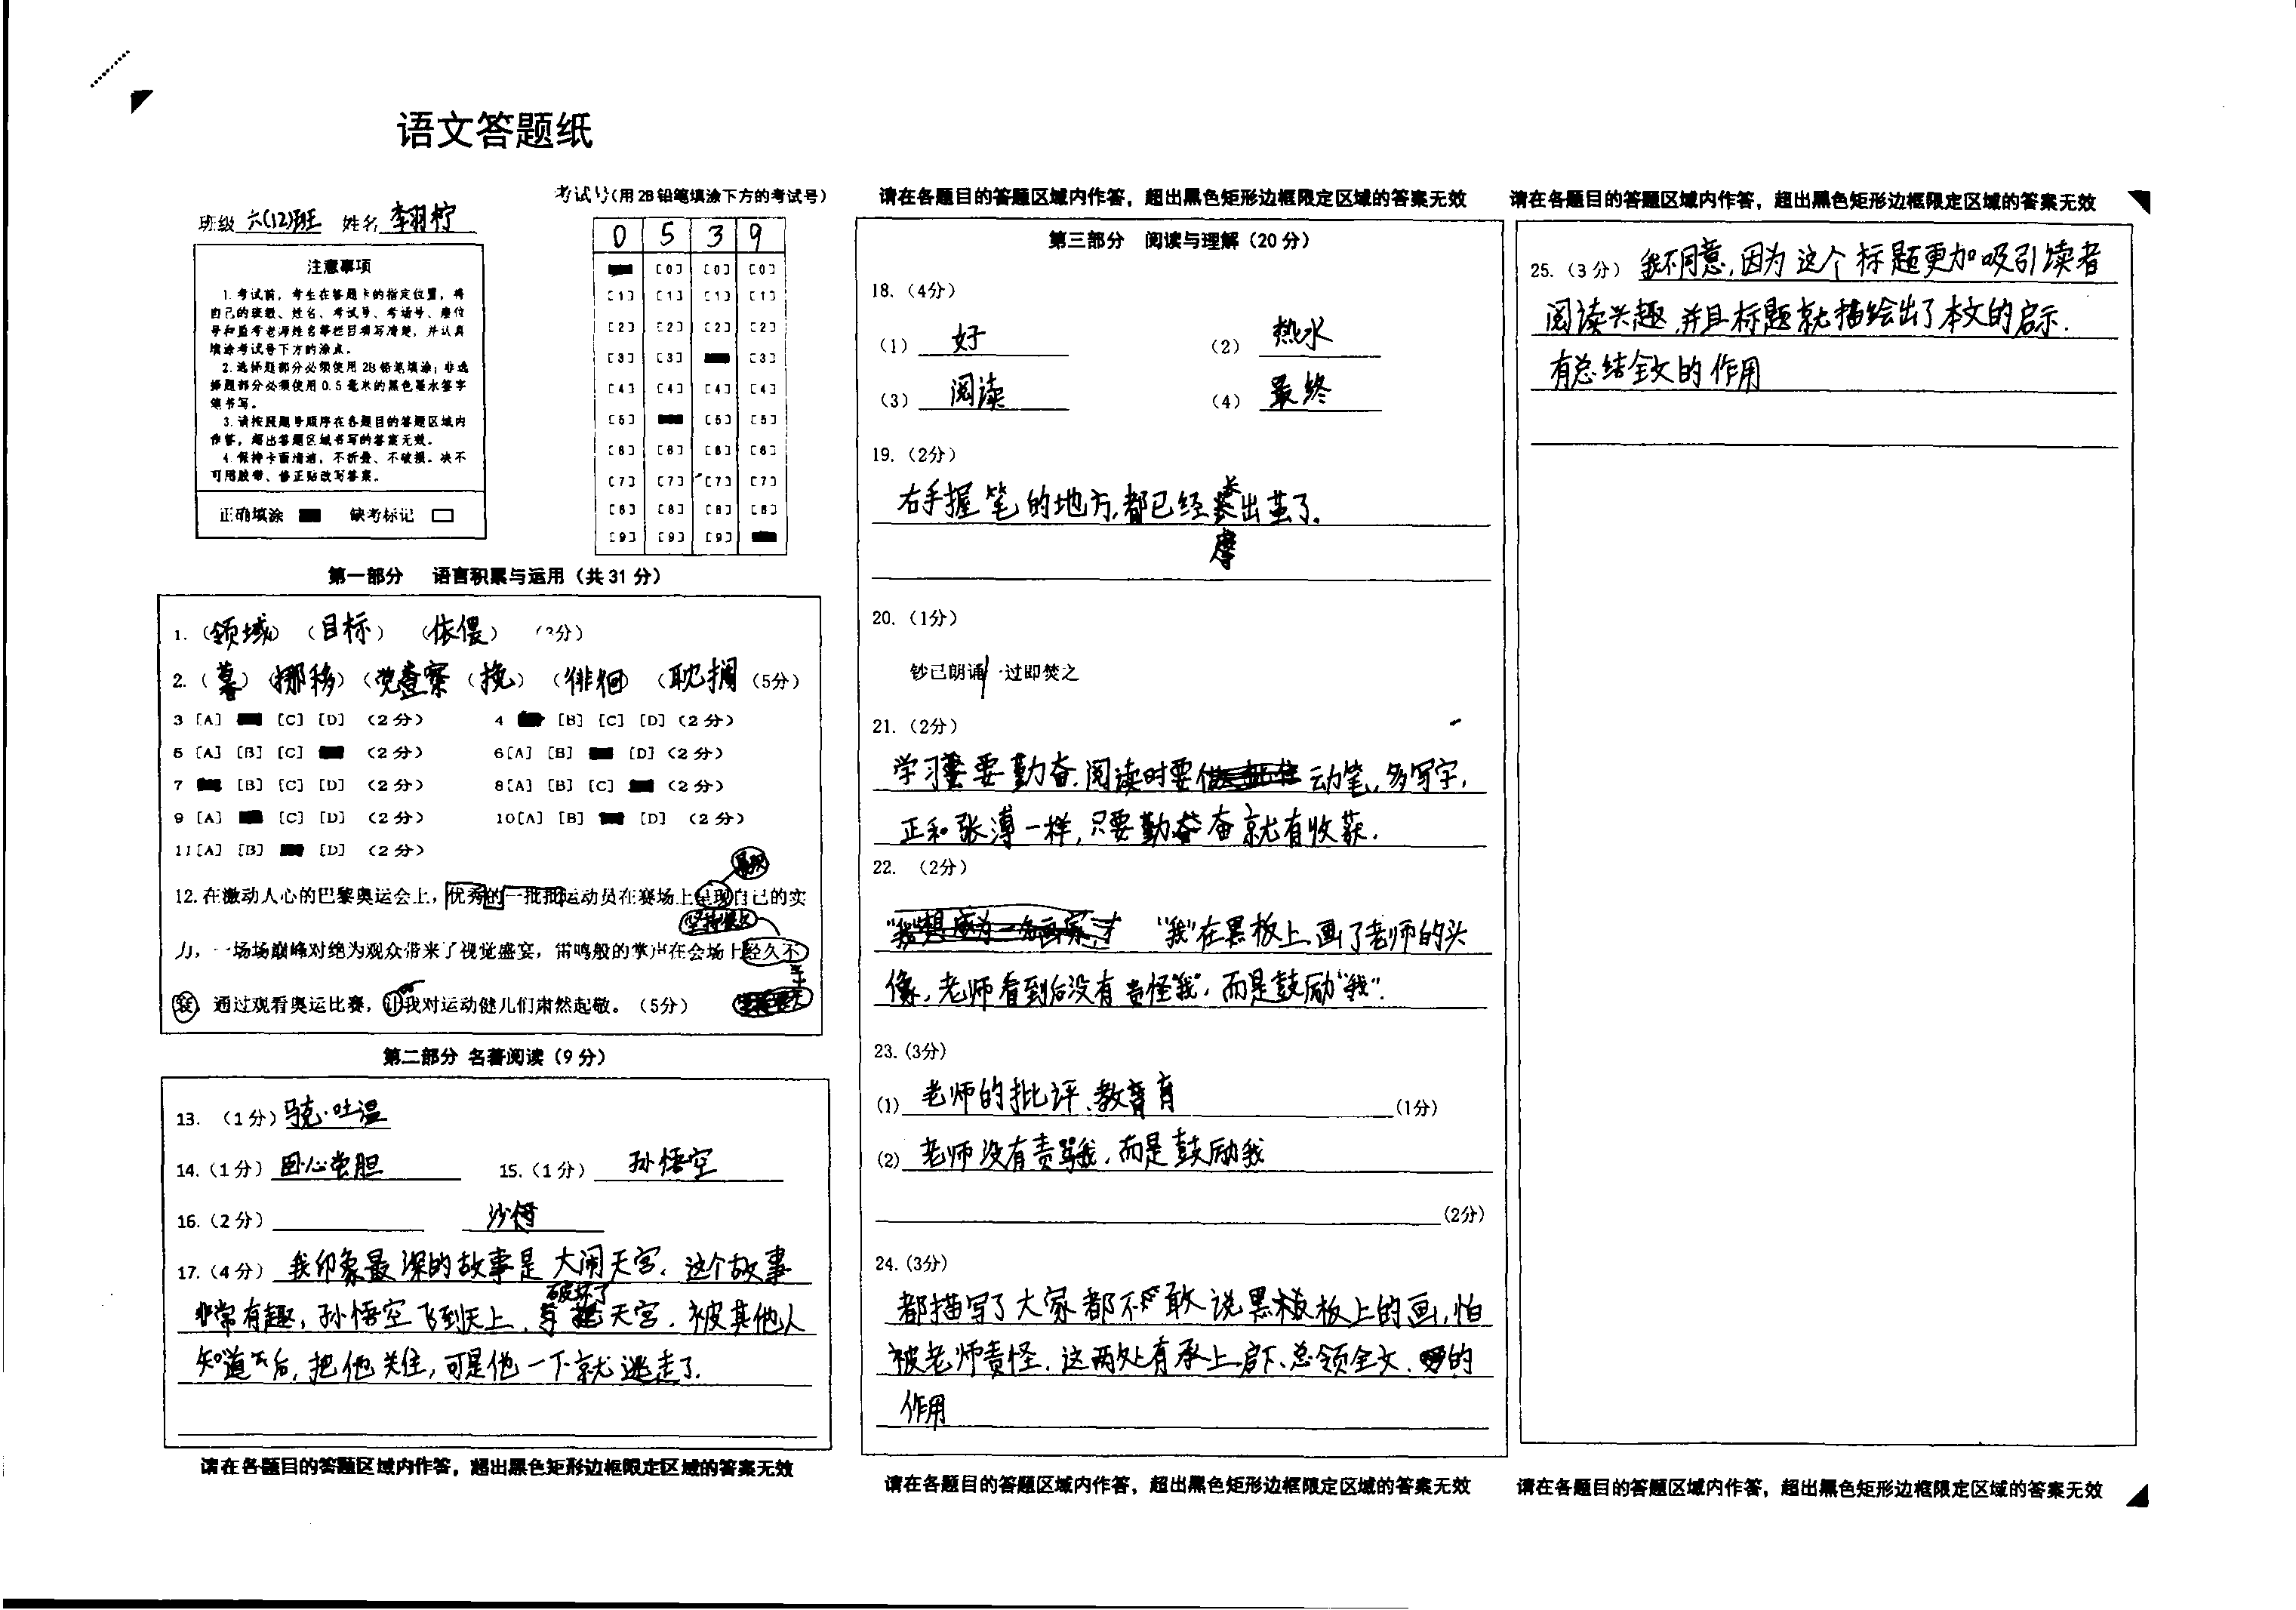 语文答题纸
班级 六(12)班 姓名 李羽柠
考试号(用2B铅笔填涂下方的考试号)
0 5 3 9
[0] [0] [0]
[1] [1] [1] [1]
[2] [2] [2] [2]
[3] [3] [3]
[4] [4] [4] [4]
[5] [5] [5]
[6] [6] [6] [6]
[7] [7] [7] [7]
[8] [8] [8] [8]
[9] [9] [9]
注意事项
1.考试前,考生在答题卡的指定位置,将
自己的班级、姓名、考试号、考场号、座位
号和监考老师姓名等栏目填写清楚,并认真
填涂考试号下方的涂点。
2.选择题部分必须使用2B铅笔填涂;非选
择题部分必须使用0.5毫米的黑色墨水签字
笔书写。
3.请按照题号顺序在各题目的答题区域内
作答,超出答题区域书写的答案无效。
4.保持卡面清洁,不折叠、不破损。决不
可用胶带、修正贴改写答案。
正确填涂 缺考标记
第一部分 语言积累与运用(共31分)
1.(领域)(目标)(依偎)(3分)
2.(暮)(挪移)(觉查察)(挽)(徘徊)(耽搁(5分)
3 [A] [C] [D] (2分) 4 [B] [C] [D] (2分)
5 [A] [B] [C] (2分) 6[A] [B] [D] (2分)
7 [B] [C] [D] (2分) 8[A] [B] [C] (2分)
9 [A] [C] [D] (2分) 10[A] [B] [D] (2分)
11[A] [B] [D] (2分)
12.在激动人心的巴黎奥运会上,优秀的一批批运动员在赛场上呈现自己的实
力,一场场巅峰对绝为观众带来了视觉盛宴,雷鸣般的掌声在会场上经久不
衰。通过观看奥运比赛,让我对运动健儿们肃然起敬。(5分)
第二部分 名著阅读(9分)
13.(1分)马克·吐温
14.(1分)卧心尝胆 15.(1分)孙悟空
16.(2分) 沙僧
17.(4分)我印象最深的故事是大闹天宫。这个故事
破坏了
非常有趣,孙悟空飞到天上, 天宫。被其他人
知道后,把他关住,可是他一下就逃走了.
请在各题目的答题区域内作答,超出黑色矩形边框限定区域的答案无效
请在各题目的答题区域内作答,超出黑色矩形边框限定区域的答案无效
第三部分 阅读与理解(20分)
18.(4分)
(1)好 (2)热水
(3)阅读 (4)最终
19.(2分)
右手握笔的地方,都已经长出茧了.
摩
20.(1分)
钞已朗诵/一过即焚之
21.(2分)
学习要勤奋.阅读时要 动笔,多写字,
正和张溥一样,只要勤奋就有收获.
22.(2分)
"我"在黑板上画了老师的头
像,老师看到后没有责怪"我",而是鼓励"我".
23.(3分)
(1)老师的批评、教育 (1分)
(2)老师没有责骂我,而是鼓励我
(2分)
24.(3分)
都描写了大家都不敢说黑板上的画,怕
被老师责怪.这两处有承上启下、总领全文、的
作用
请在各题目的答题区域内作答,超出黑色矩形边框限定区域的答案无效
请在各题目的答题区域内作答,超出黑色矩形边框限定区域的答案无效
25.(3分)我不同意,因为这个标题更加吸引读者
阅读兴趣,并且标题就描绘出了本文的启示.
有总结全文的作用
请在各题目的答题区域内作答,超出黑色矩形边框限定区域的答案无效